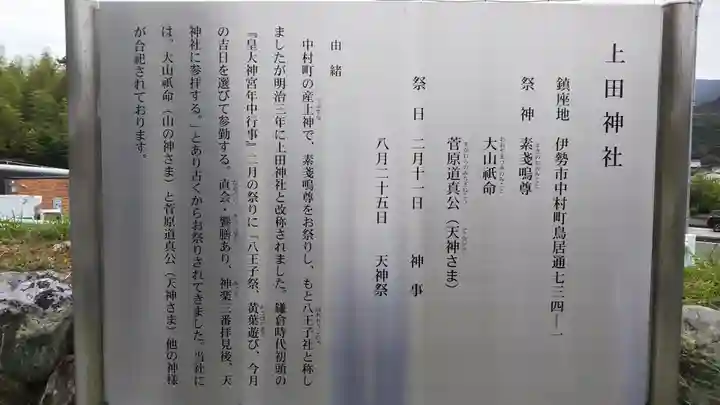 上田神社
鎮座地 伊勢市中村町鳥居通七三四―一
祭神 素戔嗚尊
大山祇命
菅原道真公（天神さま）
祭日 二月十一日 神事
八月二十五日 天神祭
由緒
中村町の産土神で、素戔嗚尊をお祭りし、もと八王子社と称し
ましたが明治三年に上田神社と改称されました。鎌倉時代初頭の
『皇大神宮年中行事』二月の祭りに『八王子祭、黄葉遊び、今月
の吉日を選びて参勤する。直会・饗膳あり、神楽三番拝見後、天
神社に参拝する。』とあり古くからお祭りされてきました。当社に
は、大山祇命（山の神さま）と菅原道真公（天神さま）他の神様
が合祀されております。